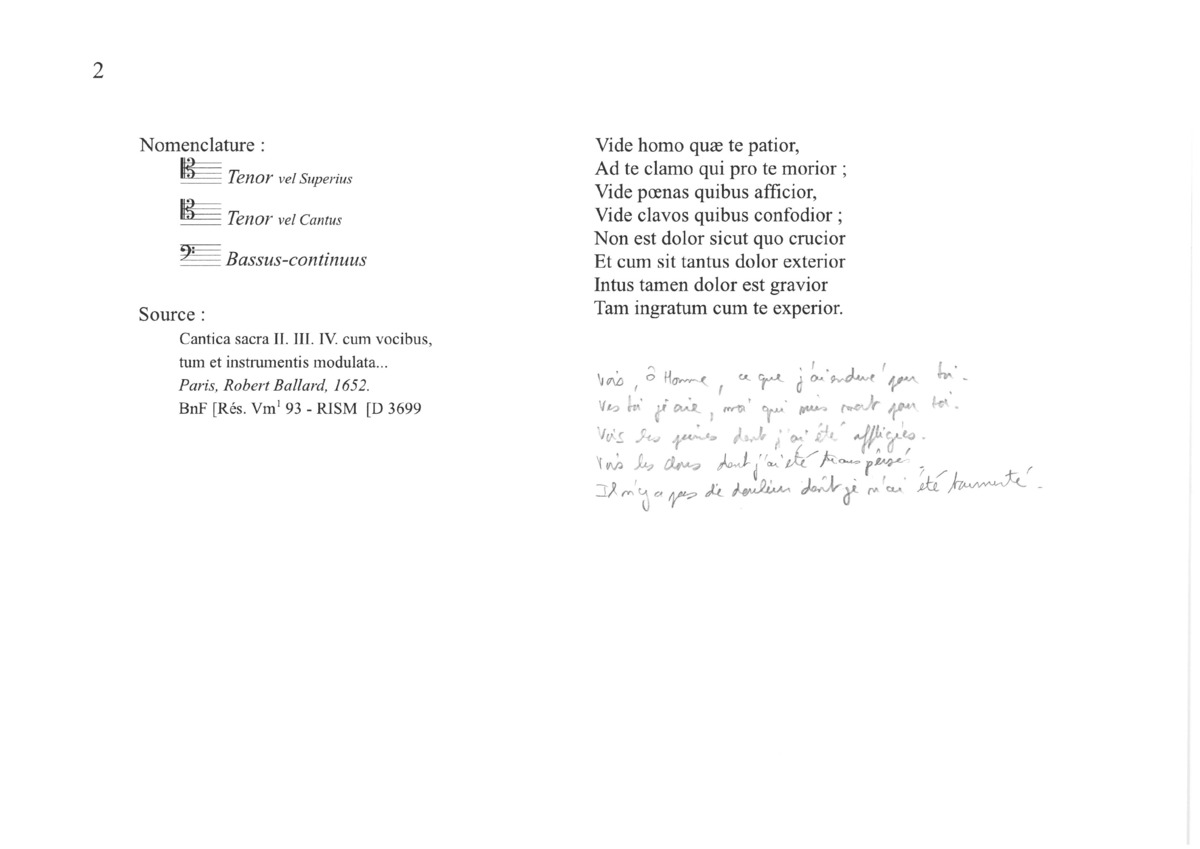 2
Nomenclature :
Tenor vel Superius
Tenor vel Cantus
Bassus-continuus
Source :
Cantica sacra II. III. IV. cum vocibus,
tum et instrumentis modulata...
Paris, Robert Ballard, 1652.
BnF [Rés. Vm¹ 93 - RISM [D 3699
Vide homo quæ te patior,
Ad te clamo qui pro te morior ;
Vide pœnas quibus afficior,
Vide clavos quibus confodior ;
Non est dolor sicut quo crucior
Et cum sit tantus dolor exterior
Intus tamen dolor est gravior
Tam ingratum cum te experior.
Vois, ô Homme, ce que j'ai enduré pour toi.
Vers toi je crie, moi qui suis mort pour toi.
Vois les peines dont j'ai été affligées.
Vois les clous dont j'ai été transpersé.
Il n'y a pas de douleur dont je n'ai été tourmenté.